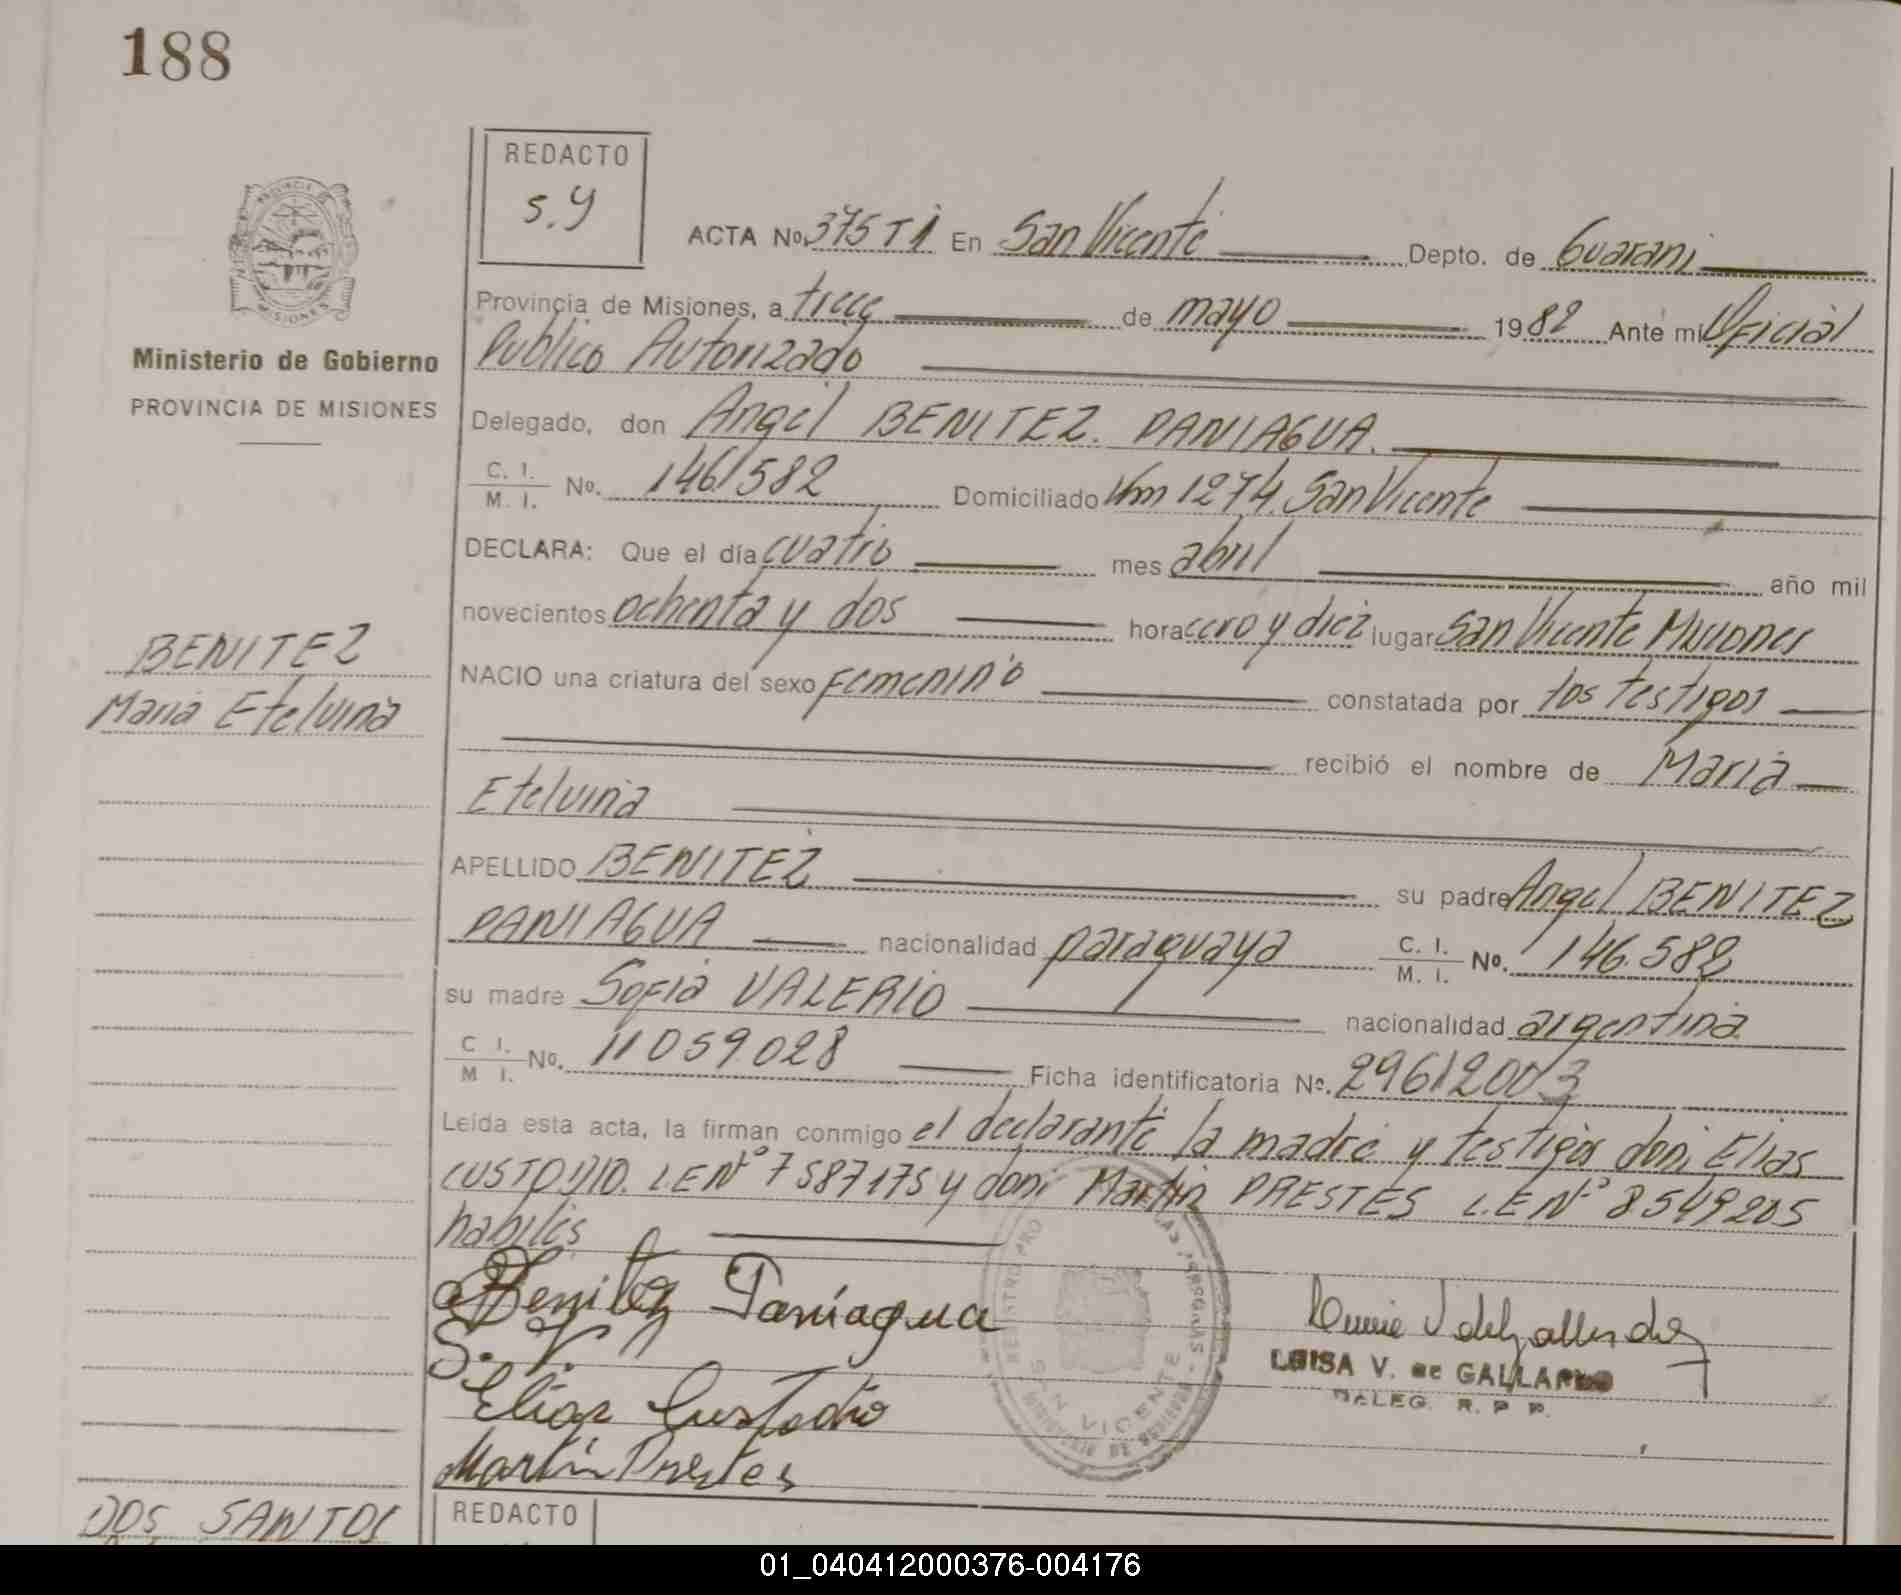 188
REDACTO
s.y
ACTA No. 375 T I En San Vicente Depto. de Guarani
Provincia de Misiones, a trece de mayo 1982 Ante mi Oficial
Publico Autorizado
Ministerio de Gobierno
PROVINCIA DE MISIONES
Delegado, don Angel BENITEZ. PANIAGUA.
C. I.
M. I. No. 146/582 Domiciliado Km 1274. San Vicente
DECLARA: Que el día cuatro mes abril año mil
novecientos ochenta y dos hora cero y diez lugar San Vicente Misiones
BENITEZ
Maria Etelvina
NACIO una criatura del sexo femenino constatada por los testigos
recibió el nombre de Maria
Etelvina
APELLIDO BENITEZ su padre Angel BENITEZ
PANIAGUA nacionalidad paraguaya C. I.
M. I. No. 146.582
su madre Sofia VALERIO nacionalidad argentina
C I.
M I. No. 11059028 Ficha identificatoria No. 29612003
Leída esta acta, la firman conmigo el declarante la madre y testigos don: Elias
CUSTODIO. L E Nº 7587175 y don: Martin PRESTES L.E Nº 8549205
habiles
Benitez Paniagua
S. V.
Elias Custodio
Martin Prestes
LUISA V. de GALLARDO
DELEG. R. P. P.
SAN VICENTE
DOS SANTOS
REDACTO
01_040412000376-004176